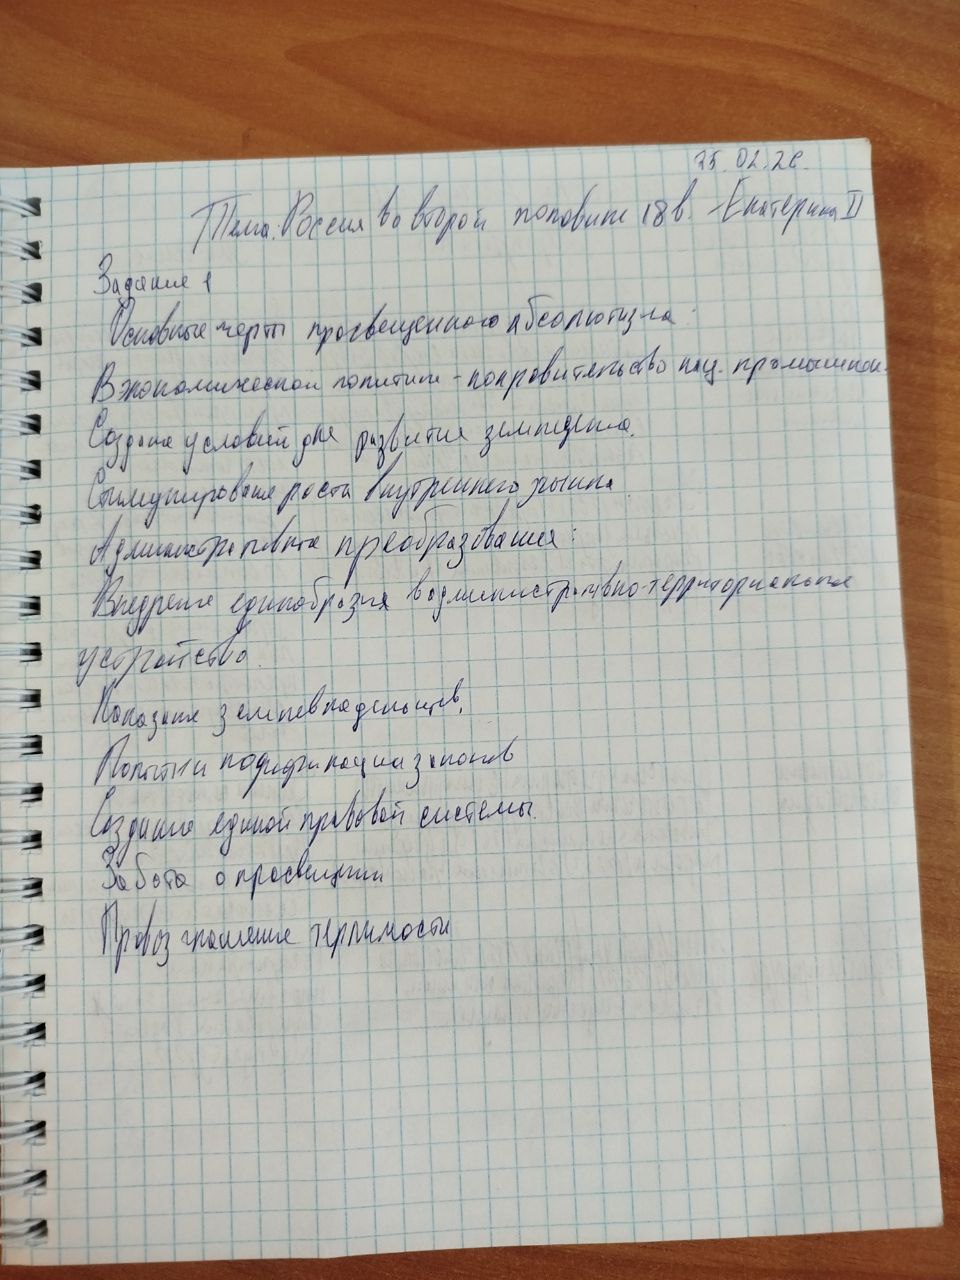 25.02.26.
Тема: Россия во второй половине 18 в. Екатерина II
Задание 1
Основные черты просвещенного абсолютизма:
В экономической политике - покровительство нац. промышлен.
Создание условий для развития земледелия.
Стимулирование роста внутреннего рынка.
Административные преобразования:
Внедрение единобразия в административно-территориальное
устройство.
землевладельцев.
Попытки кодификации законов
Создание единой правовой системы.
Забота о просвещении
Провозглашение терпимости